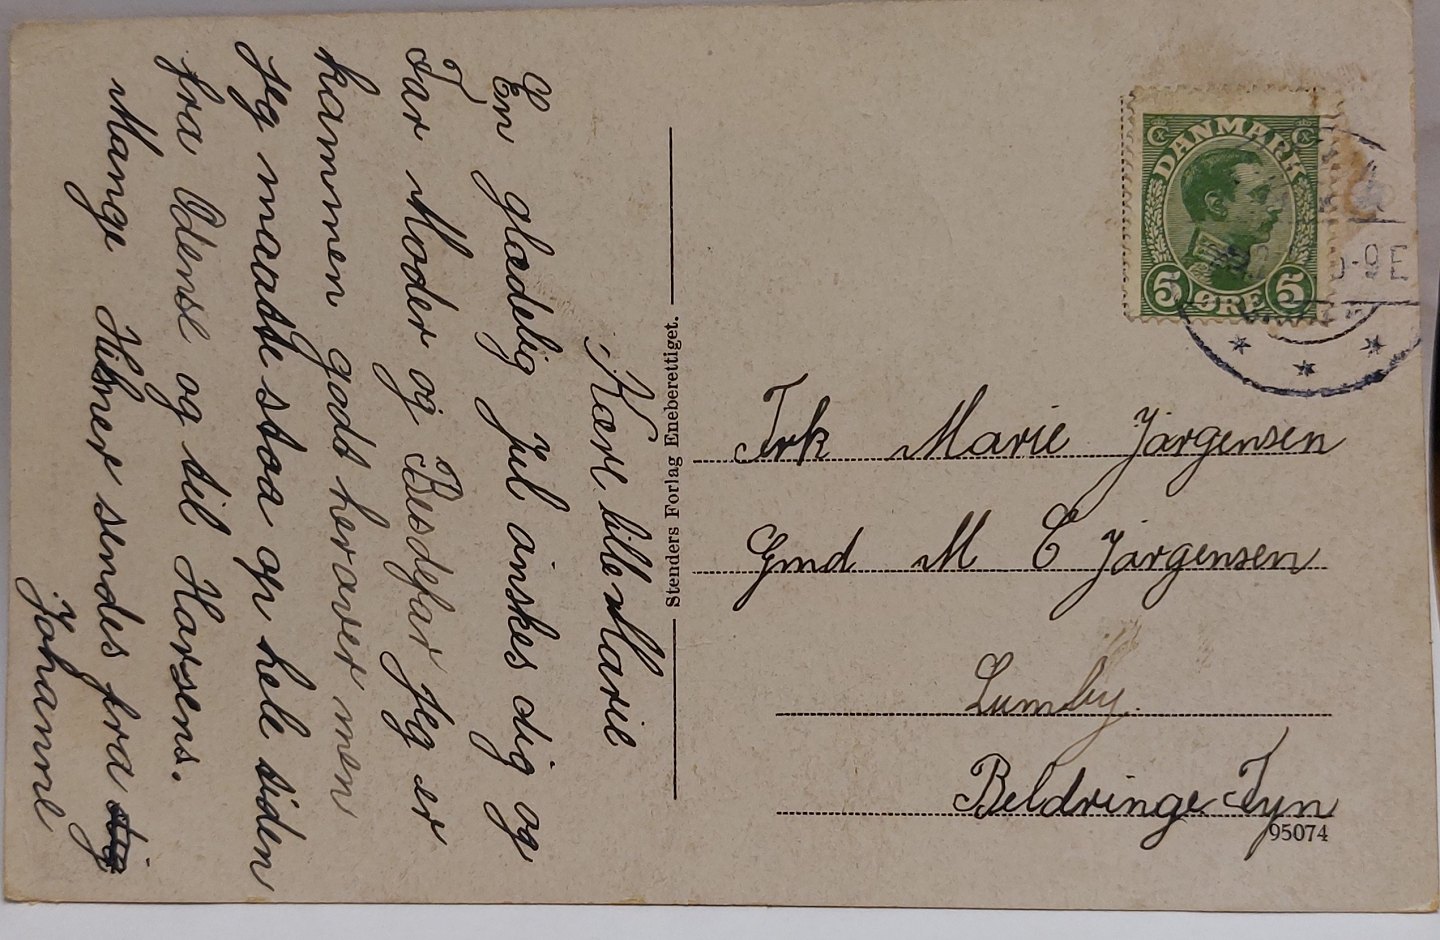 Kære lille Marie
En glædelig Jul ønskes dig og
Far Moder og Bedstefar Jeg er
kammen godt herover men
Jeg maatte staa op hele siden
fra Odense og til Horsens.
Mange Hilsner sendes fra dig
Johanne
Stenders Forlag Eneberettiget.
DANMARK
5 ØRE 5
-9E
Frk Marie Jørgensen
Gmd M C Jørgensen
Lumby.
Beldringe Fyn
95074